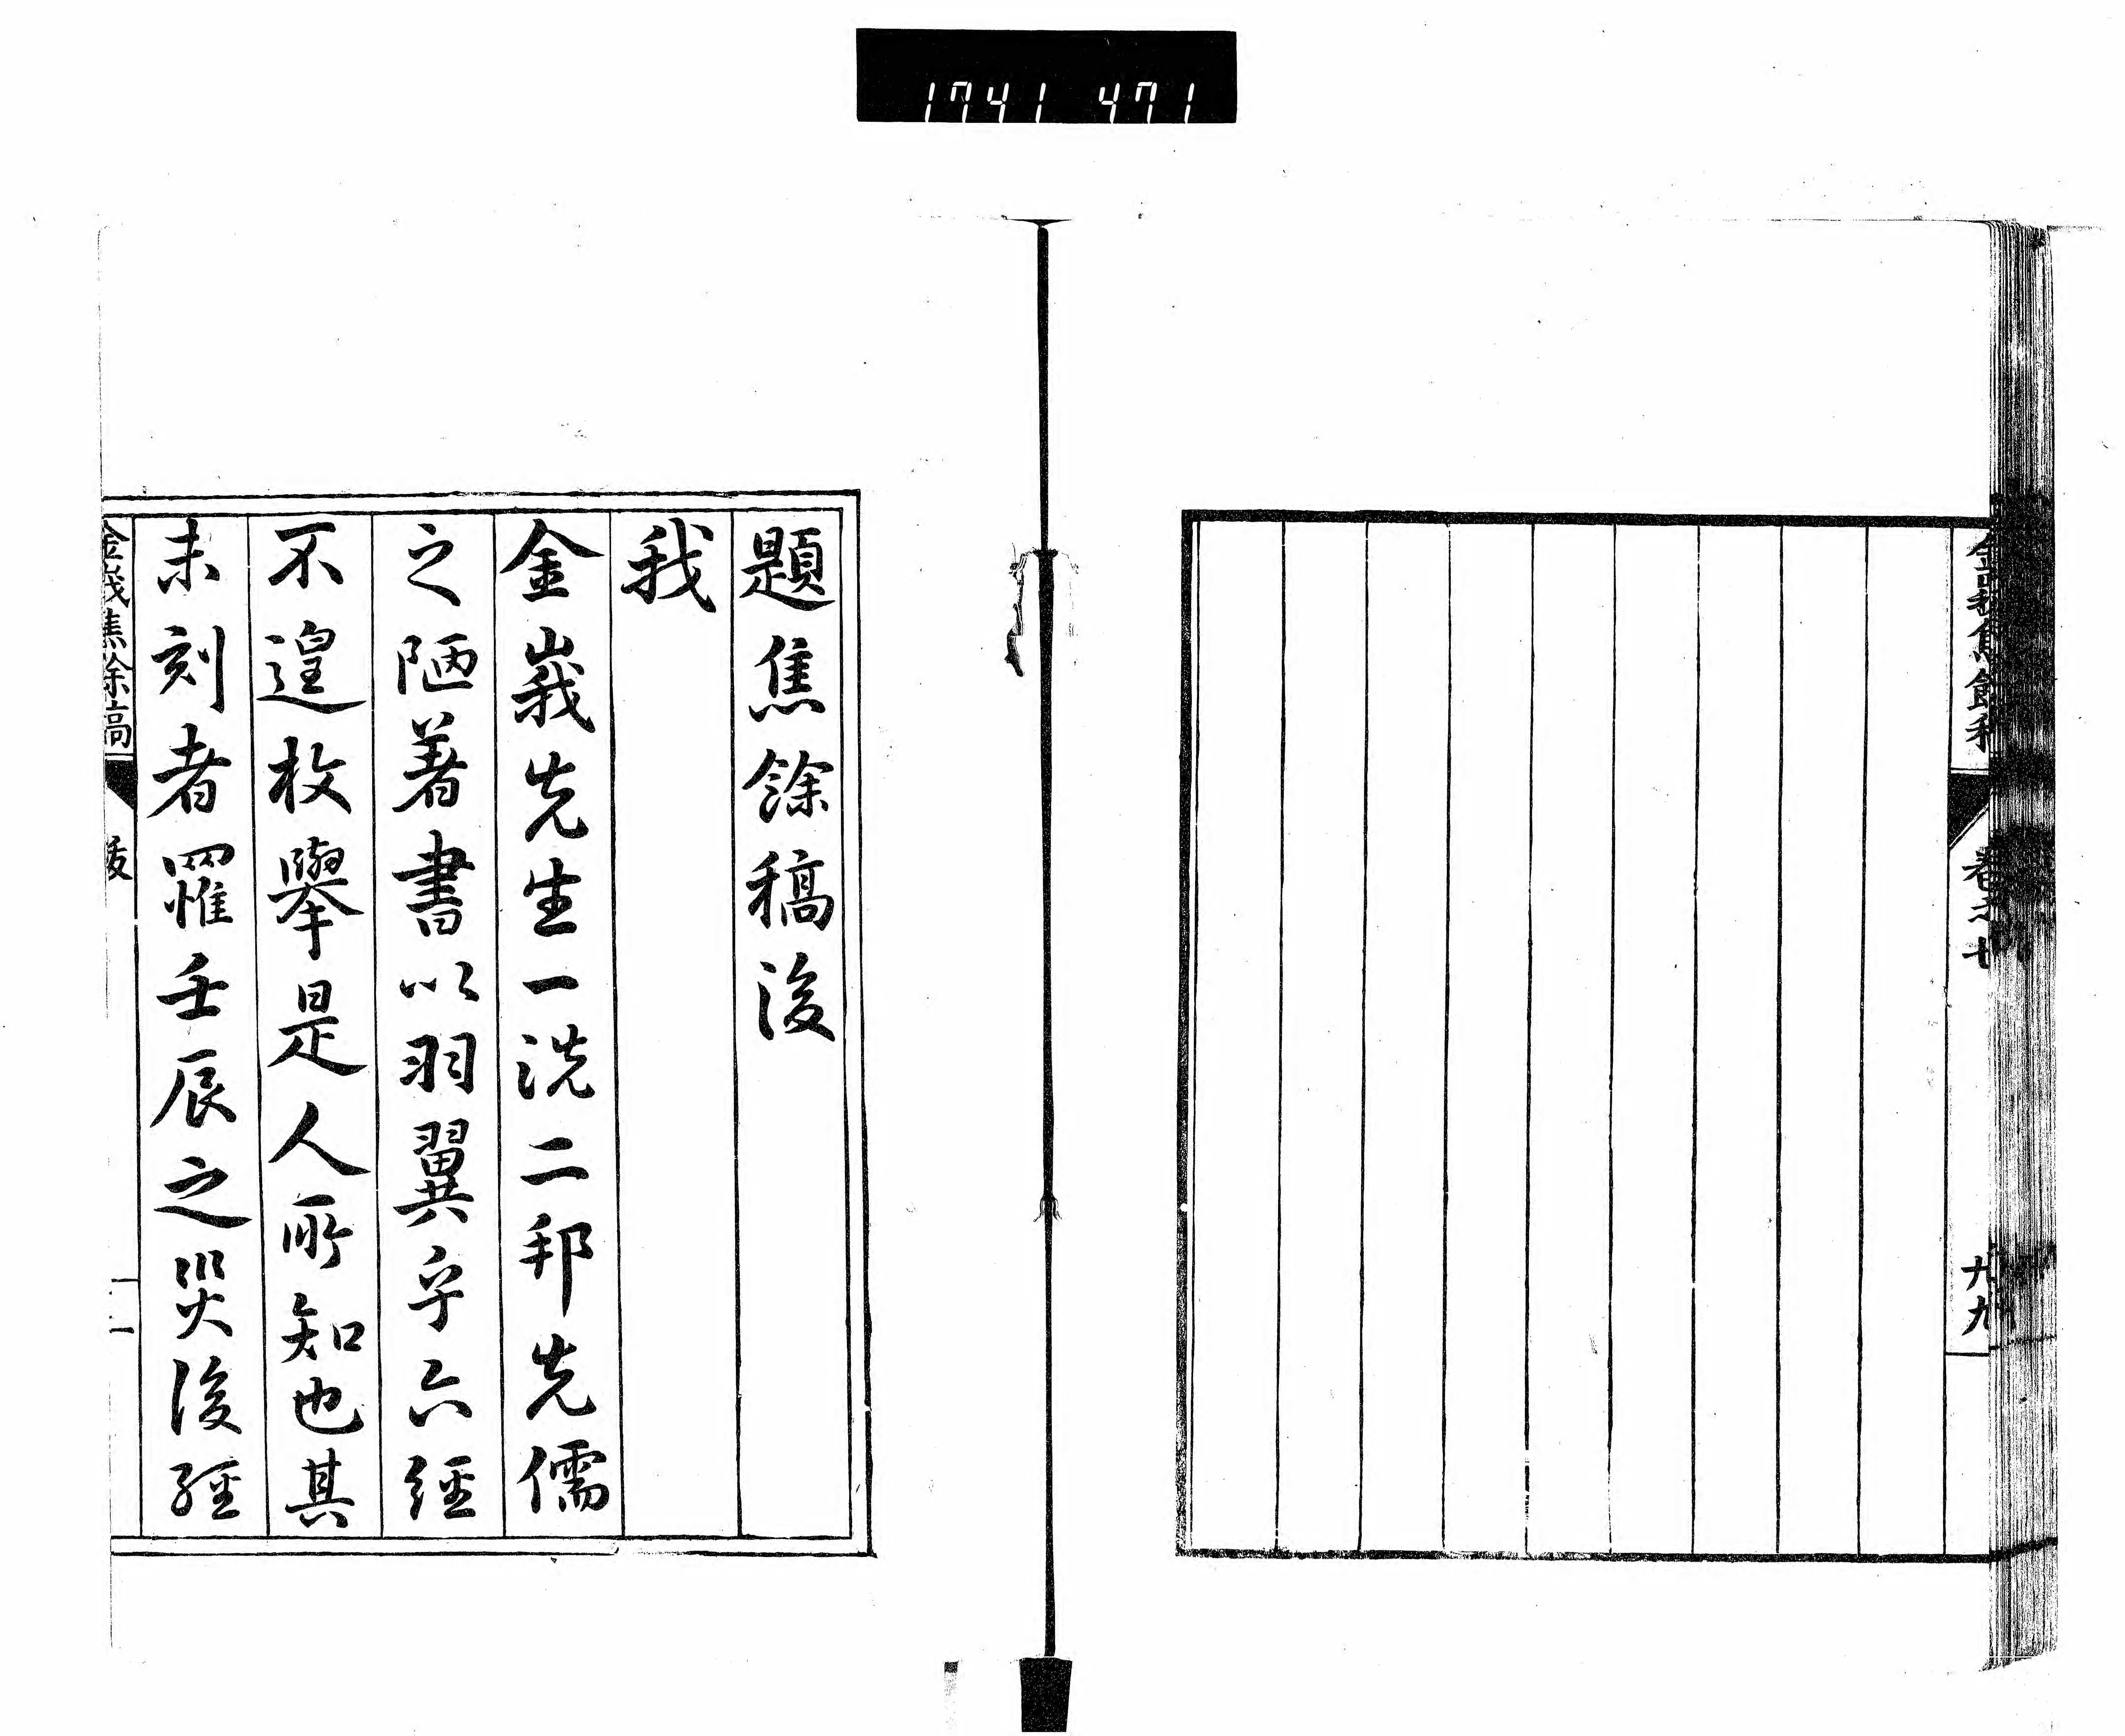 1741 471
金峩焦餘稿
卷之七
九九
題焦餘稿後
我
金峩先生一洗二邦先儒
之陋著書以羽翼乎六經
不遑枚擧是人所知也其
未刻者罹壬辰之災後經
金峩焦餘稿
跋
一